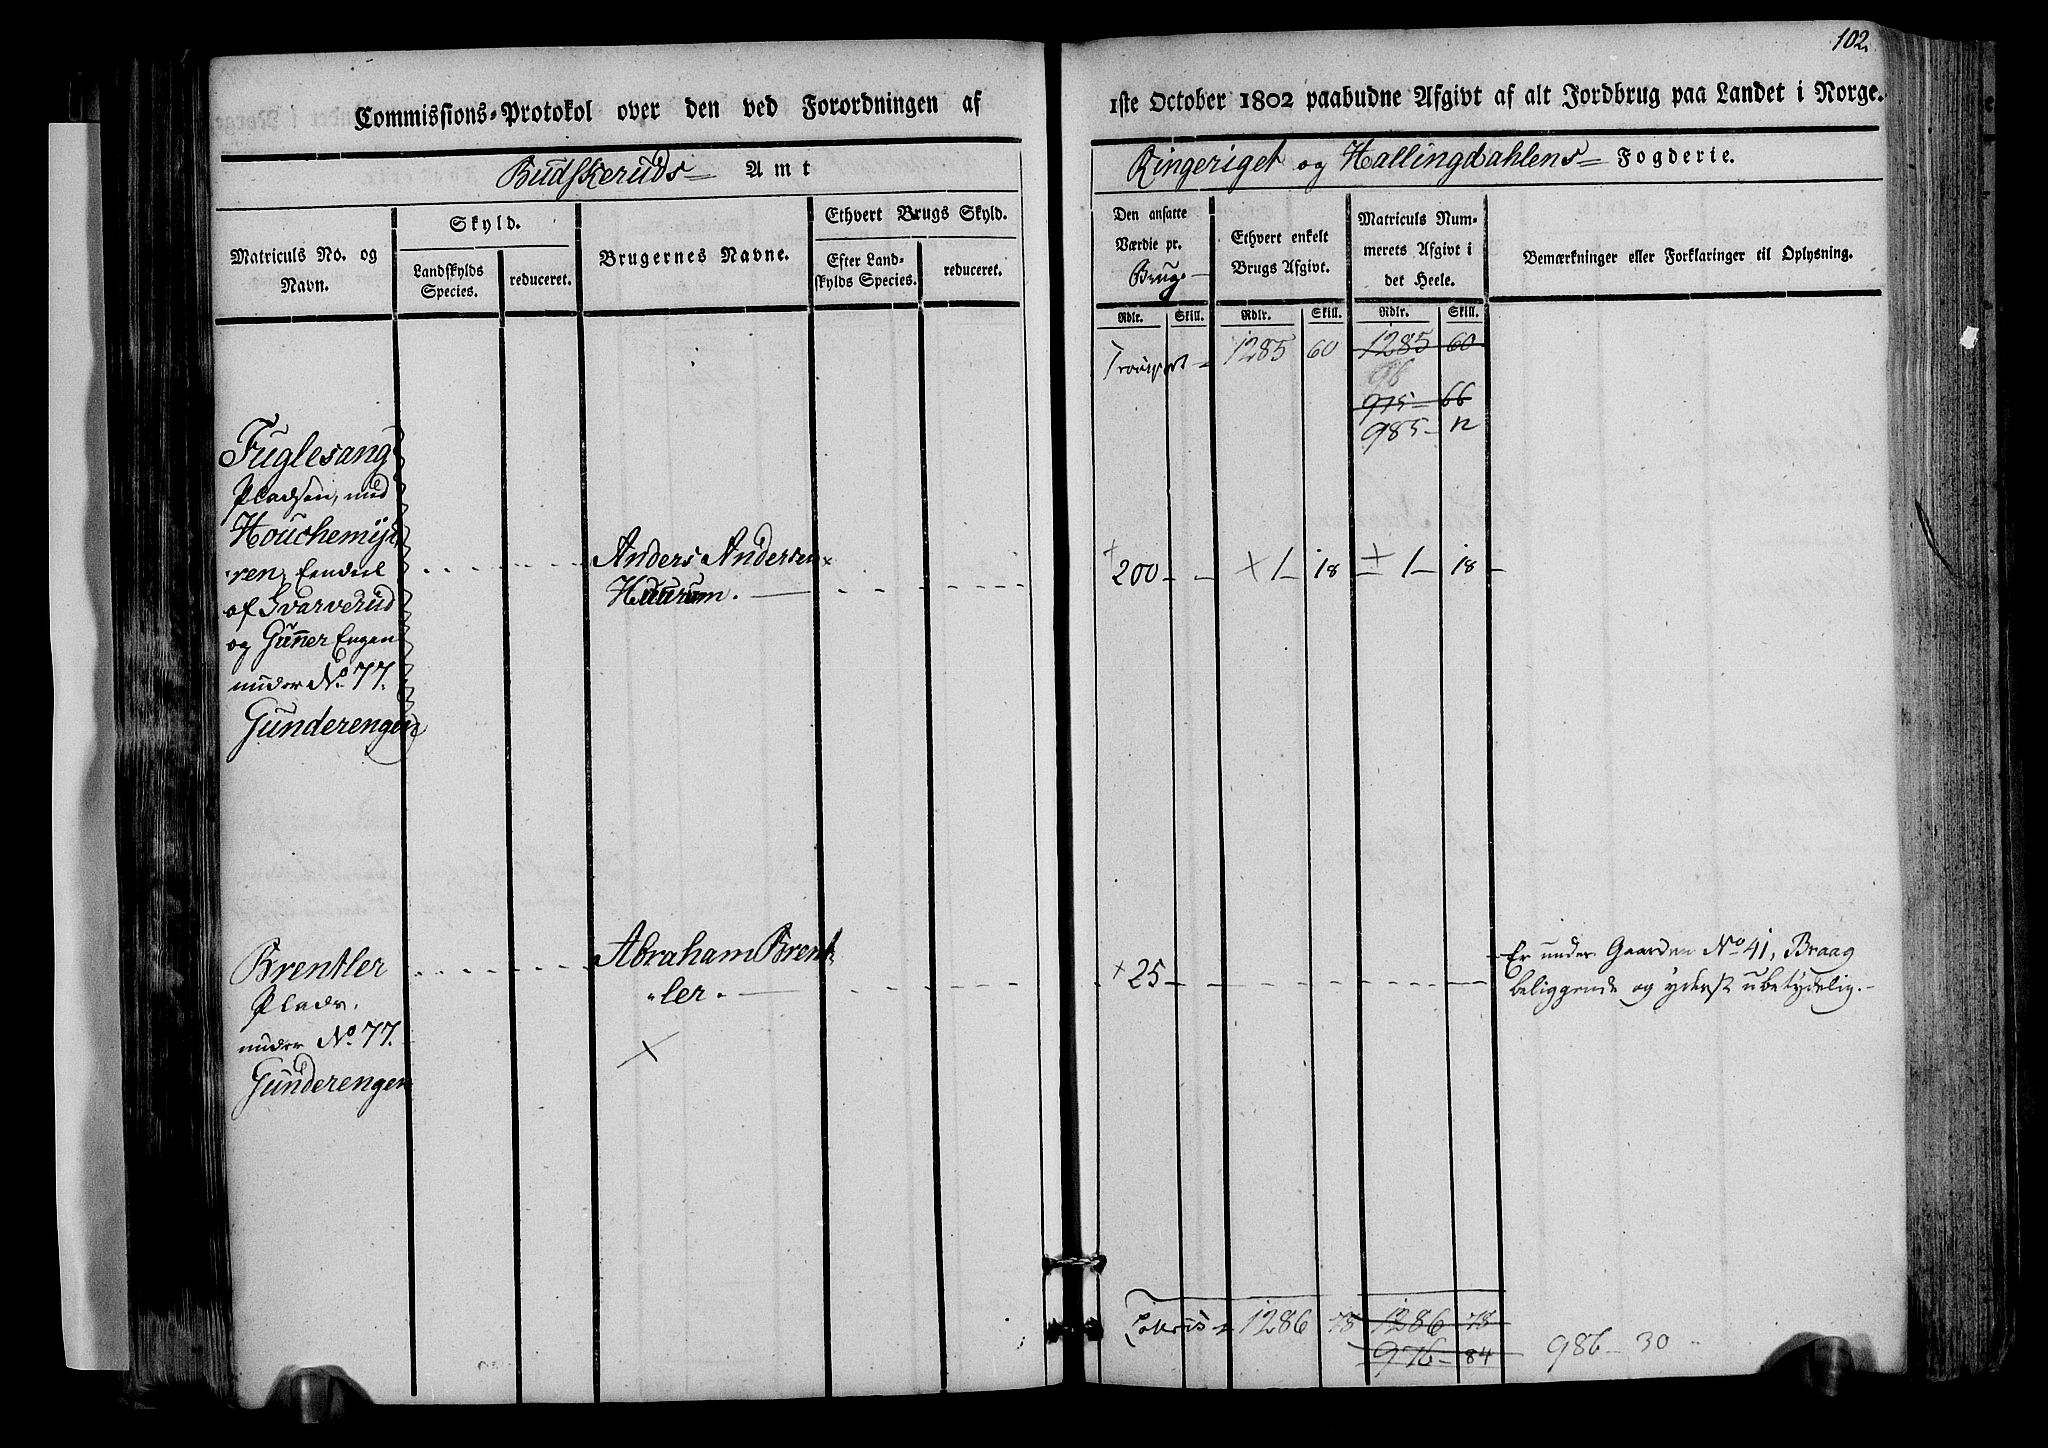 102.
Commissions-Protokol over den ved Forordningen af
1ste October 1802 paabudne Afgivt af alt Jordbrug paa Landet i Norge.
Budskeruds Amt
Ringeriget og Hallingdahlens Fogderie.
Matriculs No. og
Navn.
Skyld.
Landskylds
Species.
reduceret.
Brugernes Navne.
Ethvert Brugs Skyld.
Efter Land-
skylds Species.
reduceret.
Den ansatte
Værdie pr.
Brug
Rdlr. Skill.
Ethvert enkelt
Brugs Afgivt.
Rdlr. Skill.
Matriculs Num-
merets Afgivt i
det Heele.
Rdlr. Skill.
Bemærkninger eller Forklaringer til Oplysning.
Transport 1285 60 1285 60
96
975 66
985 12
Fuglesang
Pladsen, med
Houghemyh-
ren, Eendeel
af Svarverud
og Gunner Engen
under No. 77.
Gunderengen
Anders Andersen
Huurum.
200 1 18 1 18
Brentler
Plads.
under No. 77.
Gunderengen
Abraham Brent-
ler.
25
Er under Gaarden No 41, Braag
beliggende og yderst ubetydelig.
Lateris 1286 78 1286 78
976 84
986 30